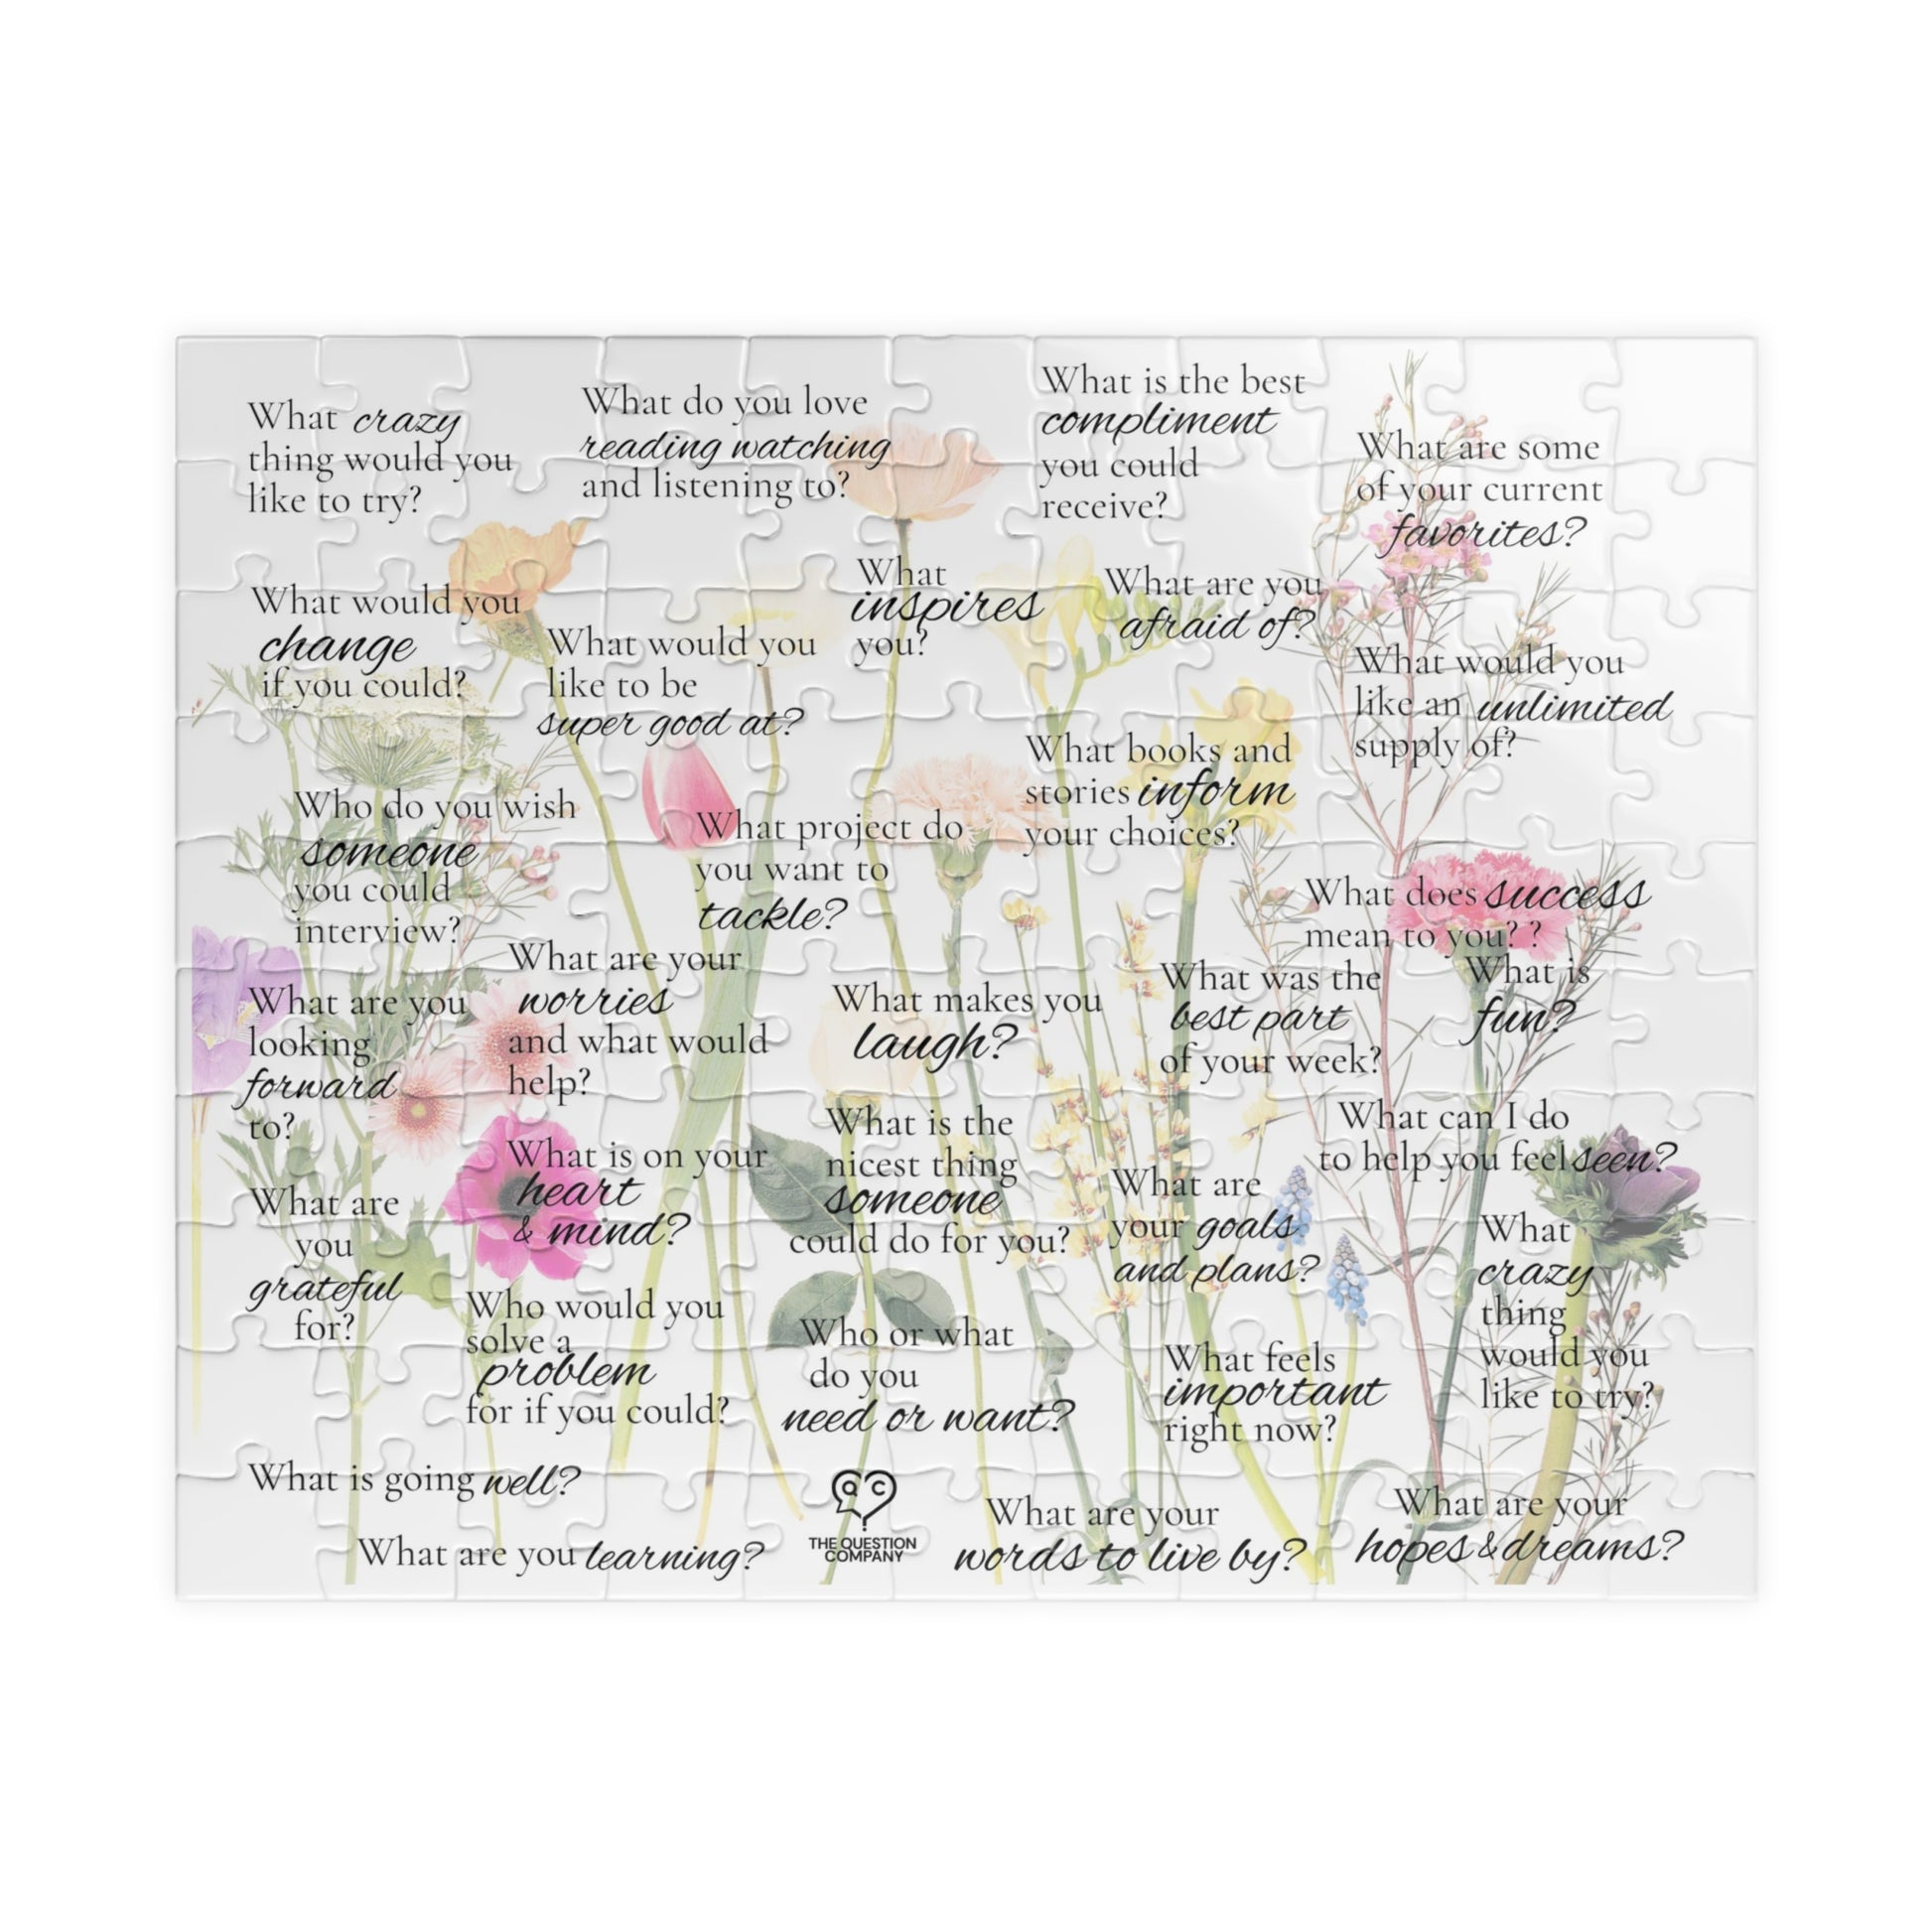 What crazy
thing would you
like to try?
What do you love
reading watching
and listening to?
What is the best
compliment
you could
receive?
What are some
of your current
favorites?
What would you
change
if you could?
What would you
like to be
super good at?
What
inspires
you?
What are you
afraid of?
What would you
like an unlimited
supply of?
Who do you wish
someone
you could
interview?
What project do
you want to
tackle?
What books and
stories inform
your choices?
What does success
mean to you? ?
What are you
looking
forward
to?
What are your
worries
and what would
help?
What makes you
laugh?
What was the
best part
of your week?
What is
fun?
What is on your
heart
& mind?
What is the
nicest thing
someone
could do for you?
What can I do
to help you feel seen?
What are
you
grateful
for?
What are
your goals
and plans?
What
crazy
thing
would you
like to try?
Who would you
solve a
problem
for if you could?
Who or what
do you
need or want?
What feels
important
right now?
What is going well?
What are you learning?
QC
THE QUESTION
COMPANY
What are your
words to live by?
What are your
hopes & dreams?